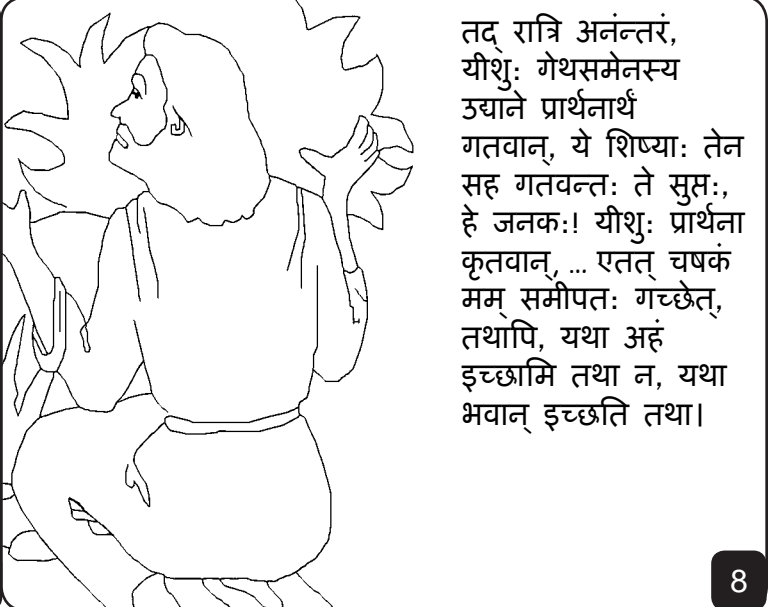 तद् रात्रि अनंन्तरं,
यीशु: गेथसमेनस्य
उद्याने प्रार्थनार्थं
गतवान्, ये शिष्या: तेन
सह गतवन्त: ते सुप्त:,
हे जनक:! यीशु: प्रार्थना
कृतवान्, ... एतत् चषकं
मम् समीपत: गच्छेत्,
तथापि, यथा अहं
इच्छामि तथा न, यथा
भवान् इच्छति तथा।
8